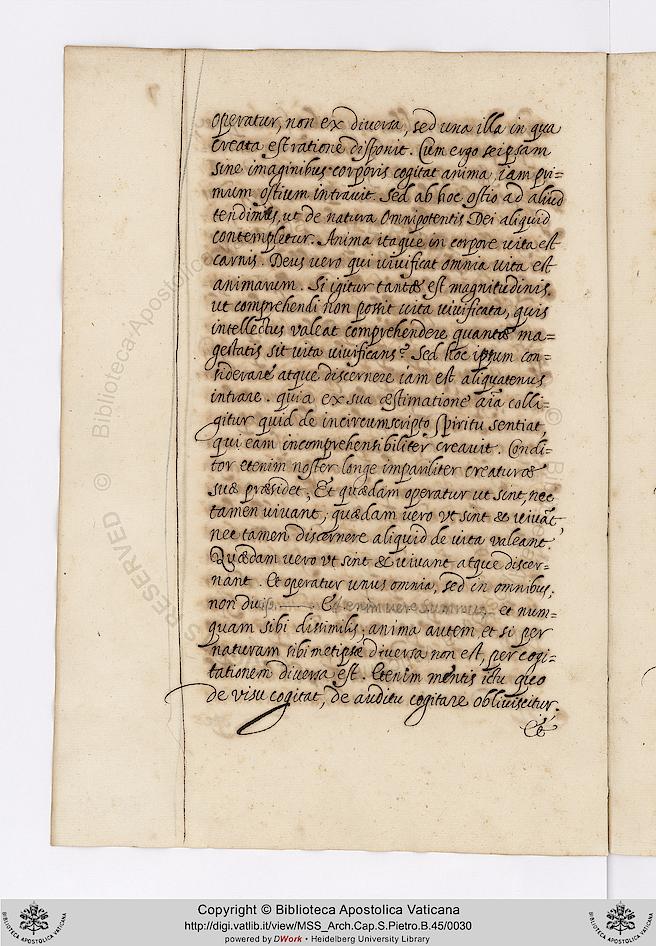 operatur, non ex diversa, sed una illa in qua
creata est ratione disponit. Cum ergo seipsam
sine imaginibus corporis cogitat anima, iam pri=
mum ostium intravit. Sed ab hoc ostio ad aliud
tendimus, ut de natura Omnipotentis Dei aliquid
contempletur. Anima itaque in corpore vita est
carnis. Deus vero qui vivificat omnia vita est
animarum. Si igitur tantæ est magnitudinis.
ut comprehendi non possit vita vivificata, quis
intellectus valeat comprehendere quantæ ma=
gestatis sit vita vivificans? Sed hoc ipsum con=
siderare atque discernere iam est aliquatenus
intrare. quia ex sua æstimatione aīa colli=
gitur quid de incircumscripto spiritu sentiat,
qui eam incomprehensibiliter creavit. Condi=
tor etenim noster longe impariliter creaturæ
suæ præsidet, Et quædam operatur ut sint, nec
tamen vivant; quædam vero vt sint & vivāt,
nec tamen discernere aliquid de vita valeant.
Quædam vero vt sint & vivant atque discer=
nant. Et operatur unus omnia, sed in omnibus,
non et num=
quam sibi dissimilis; anima autem et si per
naturam sibimetipsæ diversa non est, per cogi=
tationem diversa est. Etenim mentis ictu quo
de visu cogitat, de auditu cogitare obliviscitur.
Et
Biblioteca Apostolica Vaticana
©
Copyright © Biblioteca Apostolica Vaticana
http://digi.vatlib.it/view/MSS_Arch.Cap.S.Pietro.B.45/0030
powered by DWork • Heidelberg University Library
BIBLIOTECA APOSTOLICA VATICANA
BIBLIOTECA APOSTOLICA VATICANA